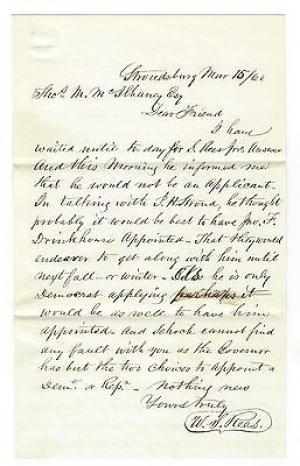 Stroudsburg Mar 15/60
Thos. M. McIlhaney Esq
Dear Friend
I have
waited until to day for S. Rees Jrs. Answer
And this Morning he informed me
that he would not be an Applicant.
In talking with J. H. Stroud, he thought
probably it would be best to have Jno. F.
Drinkhouse Appointed - That they would
endeavor to get along with him until
next fall - or winter - As he is only
Democrat applying perhaps it
would be as well to have him
appointed - and Schoch cannot find
any fault with you as the Governor
has but the two choices to appoint a
Demt. or Repn. - Nothing new
Yours truly
W. S. Rees.